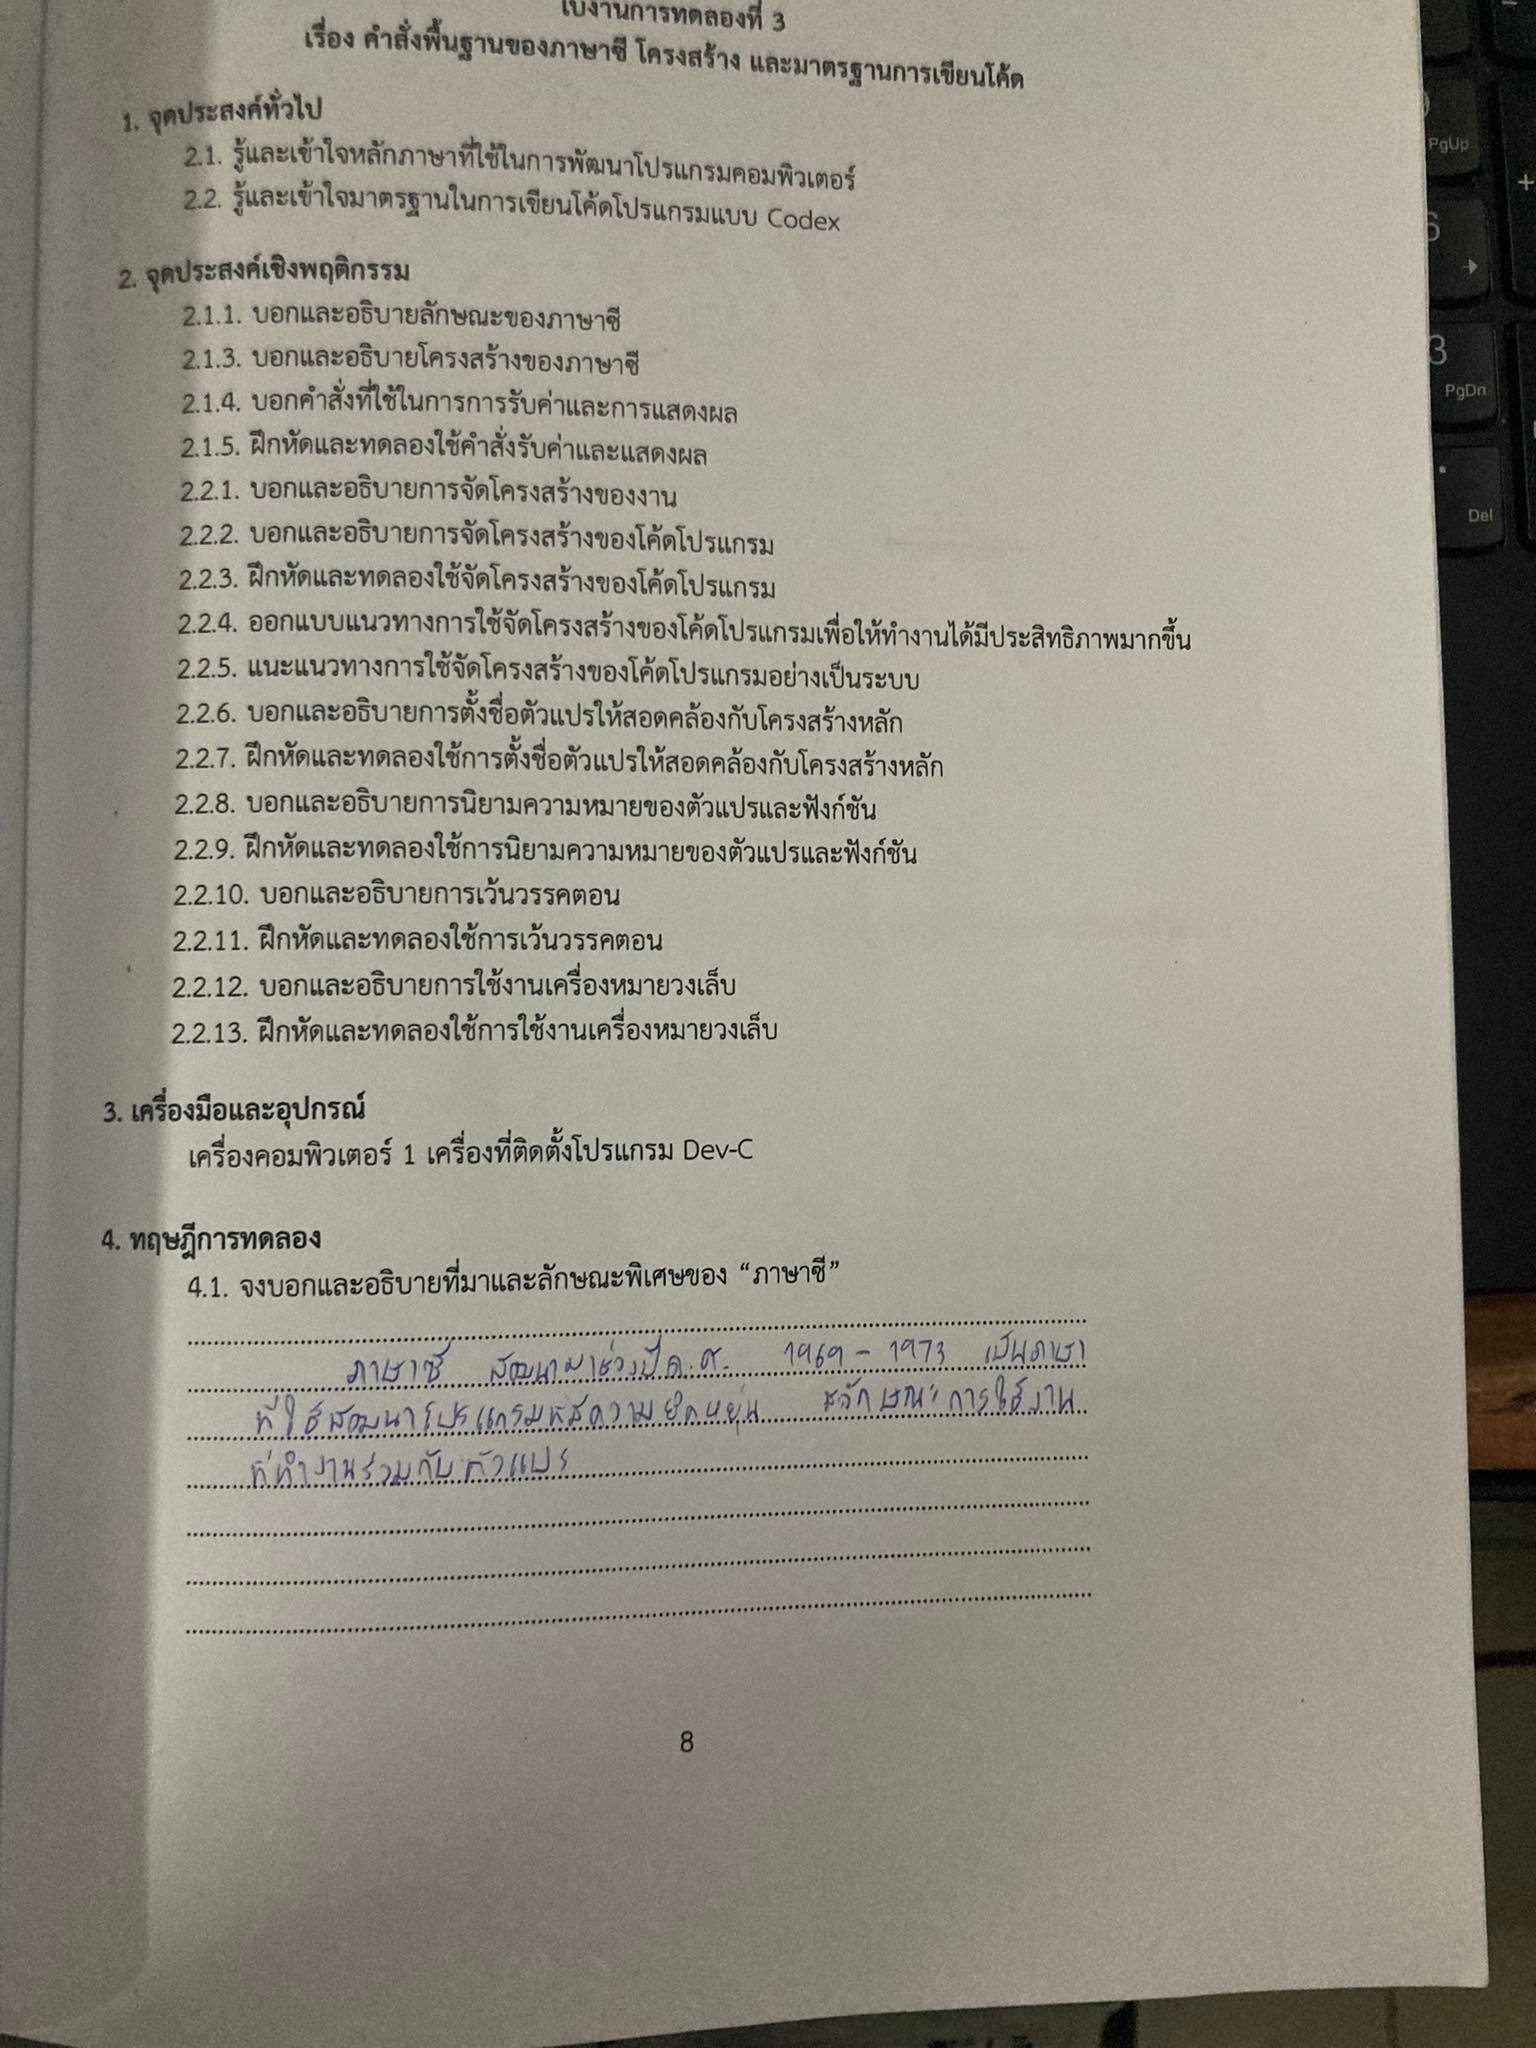 ใบงานการทดลองที่ 3
เรื่อง คำสั่งพื้นฐานของภาษาซี โครงสร้าง และมาตรฐานการเขียนโค้ด
1. จุดประสงค์ทั่วไป
2.1. รู้และเข้าใจหลักภาษาที่ใช้ในการพัฒนาโปรแกรมคอมพิวเตอร์
2.2. รู้และเข้าใจมาตรฐานในการเขียนโค้ดโปรแกรมแบบ Codex
2. จุดประสงค์เชิงพฤติกรรม
2.1.1. บอกและอธิบายลักษณะของภาษาซี
2.1.3. บอกและอธิบายโครงสร้างของภาษาซี
2.1.4. บอกคำสั่งที่ใช้ในการการรับค่าและการแสดงผล
2.1.5. ฝึกหัดและทดลองใช้คำสั่งรับค่าและแสดงผล
2.2.1. บอกและอธิบายการจัดโครงสร้างของงาน
2.2.2. บอกและอธิบายการจัดโครงสร้างของโค้ดโปรแกรม
2.2.3. ฝึกหัดและทดลองใช้จัดโครงสร้างของโค้ดโปรแกรม
2.2.4. ออกแบบแนวทางการใช้จัดโครงสร้างของโค้ดโปรแกรมเพื่อให้ทำงานได้มีประสิทธิภาพมากขึ้น
2.2.5. แนะแนวทางการใช้จัดโครงสร้างของโค้ดโปรแกรมอย่างเป็นระบบ
2.2.6. บอกและอธิบายการตั้งชื่อตัวแปรให้สอดคล้องกับโครงสร้างหลัก
2.2.7. ฝึกหัดและทดลองใช้การตั้งชื่อตัวแปรให้สอดคล้องกับโครงสร้างหลัก
2.2.8. บอกและอธิบายการนิยามความหมายของตัวแปรและฟังก์ชัน
2.2.9. ฝึกหัดและทดลองใช้การนิยามความหมายของตัวแปรและฟังก์ชัน
2.2.10. บอกและอธิบายการเว้นวรรคตอน
2.2.11. ฝึกหัดและทดลองใช้การเว้นวรรคตอน
2.2.12. บอกและอธิบายการใช้งานเครื่องหมายวงเล็บ
2.2.13. ฝึกหัดและทดลองใช้การใช้งานเครื่องหมายวงเล็บ
3. เครื่องมือและอุปกรณ์
เครื่องคอมพิวเตอร์ 1 เครื่องที่ติดตั้งโปรแกรม Dev-C
4. ทฤษฎีการทดลอง
4.1. จงบอกและอธิบายที่มาและลักษณะพิเศษของ “ภาษาซี”
ภาษาซี ช่วงปี ค.ศ. 1969 - 1973 เป็นภาษา
ที่ใช้ ความยืดหยุ่น การใช้งาน
ที่ทำงานร่วมกับตัวแปร
8
PgUp
+
6
3
PgDn
.
Del